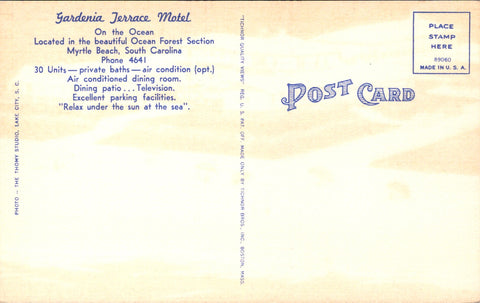 Gardenia Terrace Motel
On the Ocean
Located in the beautiful Ocean Forest Section
Myrtle Beach, South Carolina
Phone 4641
30 Units — private baths — air condition (opt.)
Air conditioned dining room.
Dining patio . . . Television.
Excellent parking facilities.
"Relax under the sun at the sea".
PHOTO — THE THOMY STUDIO, LAKE CITY, S. C.
"TICHNOR QUALITY VIEWS," REG. U. S. PAT. OFF. MADE ONLY BY TICHNOR BROS., INC., BOSTON, MASS.
POST CARD
PLACE
STAMP
HERE
89060
MADE IN U. S. A.